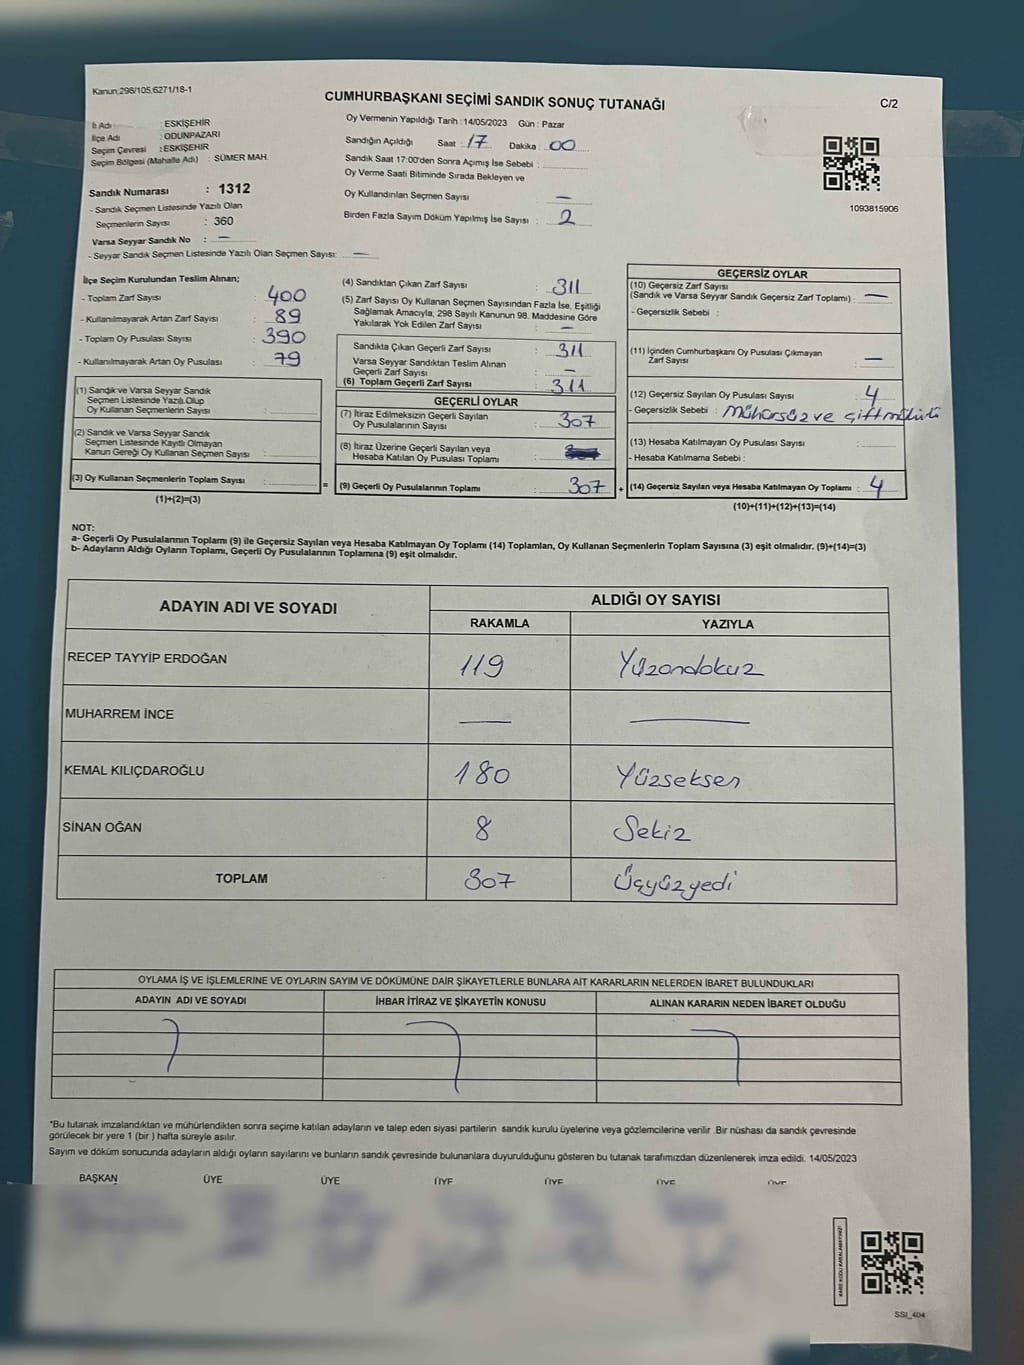 Kanun;298/105;6271/18-1
CUMHURBAŞKANI SEÇİMİ SANDIK SONUÇ TUTANAĞI
C/2
İl Adı : ESKİŞEHİR
İlçe Adı : ODUNPAZARI
Seçim Çevresi : ESKİŞEHİR
Seçim Bölgesi (Mahalle Adı) : SÜMER MAH.
Sandık Numarası : 1312
- Sandık Seçmen Listesinde Yazılı Olan
Seçmenlerin Sayısı : 360
Varsa Seyyar Sandık No : —
- Seyyar Sandık Seçmen Listesinde Yazılı Olan Seçmen Sayısı: —
Oy Vermenin Yapıldığı Tarih : 14/05/2023 Gün : Pazar
Sandığın Açıldığı Saat : 17 Dakika : 00
Sandık Saat 17:00'den Sonra Açımış İse Sebebi :
Oy Verme Saati Bitiminde Sırada Bekleyen ve
Oy Kullandırılan Seçmen Sayısı : —
Birden Fazla Sayım Döküm Yapılmış İse Sayısı : 2
1093815906
İlçe Seçim Kurulundan Teslim Alınan;
- Toplam Zarf Sayısı : 400
- Kullanılmayarak Artan Zarf Sayısı : 89
- Toplam Oy Pusulası Sayısı : 390
- Kullanılmayarak Artan Oy Pusulası : 79
(1) Sandık ve Varsa Seyyar Sandık
Seçmen Listesinde Yazılı Olup
Oy Kullanan Seçmenlerin Sayısı :
(2) Sandık ve Varsa Seyyar Sandık
Seçmen Listesinde Kayıtlı Olmayan
Kanun Gereği Oy Kullanan Seçmen Sayısı :
(3) Oy Kullanan Seçmenlerin Toplam Sayısı :
(1)+(2)=(3)
(4) Sandıktan Çıkan Zarf Sayısı : 311
(5) Zarf Sayısı Oy Kullanan Seçmen Sayısından Fazla İse, Eşitliği
Sağlamak Amacıyla, 298 Sayılı Kanunun 98. Maddesine Göre
Yakılarak Yok Edilen Zarf Sayısı : —
Sandıkta Çıkan Geçerli Zarf Sayısı : 311
Varsa Seyyar Sandıktan Teslim Alınan
Geçerli Zarf Sayısı : —
(6) Toplam Geçerli Zarf Sayısı : 311
GEÇERLİ OYLAR
(7) İtiraz Edilmeksizin Geçerli Sayılan
Oy Pusulalarının Sayısı : 307
(8) İtiraz Üzerine Geçerli Sayılan veya
Hesaba Katılan Oy Pusulası Toplamı :
= (9) Geçerli Oy Pusulalarının Toplamı : 307 +
GEÇERSİZ OYLAR
(10) Geçersiz Zarf Sayısı
(Sandık ve Varsa Seyyar Sandık Geçersiz Zarf Toplamı) : —
- Geçersizlik Sebebi :
(11) İçinden Cumhurbaşkanı Oy Pusulası Çıkmayan
Zarf Sayısı : —
(12) Geçersiz Sayılan Oy Pusulası Sayısı : 4
- Geçersizlik Sebebi : Mühürsüz ve çift mühürlü
(13) Hesaba Katılmayan Oy Pusulası Sayısı :
- Hesaba Katılmama Sebebi :
(14) Geçersiz Sayılan veya Hesaba Katılmayan Oy Toplamı : 4
(10)+(11)+(12)+(13)=(14)
NOT:
a- Geçerli Oy Pusulalarının Toplamı (9) ile Geçersiz Sayılan veya Hesaba Katılmayan Oy Toplamı (14) Toplamları, Oy Kullanan Seçmenlerin Toplam Sayısına (3) eşit olmalıdır. (9)+(14)=(3)
b- Adayların Aldığı Oyların Toplamı, Geçerli Oy Pusulalarının Toplamına (9) eşit olmalıdır.
ADAYIN ADI VE SOYADI
ALDIĞI OY SAYISI
RAKAMLA YAZIYLA
RECEP TAYYİP ERDOĞAN 119 Yüzondokuz
MUHARREM İNCE — —
KEMAL KILIÇDAROĞLU 180 Yüzseksen
SİNAN OĞAN 8 Sekiz
TOPLAM 307 Üçyüzyedi
OYLAMA İŞ VE İŞLEMLERİNE VE OYLARIN SAYIM VE DÖKÜMÜNE DAİR ŞİKAYETLERLE BUNLARA AİT KARARLARIN NELERDEN İBARET BULUNDUKLARI
ADAYIN ADI VE SOYADI İHBAR İTİRAZ VE ŞİKAYETİN KONUSU ALINAN KARARIN NEDEN İBARET OLDUĞU
*Bu tutanak imzalandıktan ve mühürlendikten sonra seçime katılan adayların ve talep eden siyasi partilerin sandık kurulu üyelerine veya gözlemcilerine verilir. Bir nüshası da sandık çevresinde
görülecek bir yere 1 (bir ) hafta süreyle asılır.
Sayım ve döküm sonucunda adayların aldığı oyların sayılarını ve bunların sandık çevresinde bulunanlara duyurulduğunu gösteren bu tutanak tarafımızdan düzenlenerek imza edildi. 14/05/2023
BAŞKAN ÜYE ÜYE ÜYE ÜYE ÜYE ÜYE
SSI_404